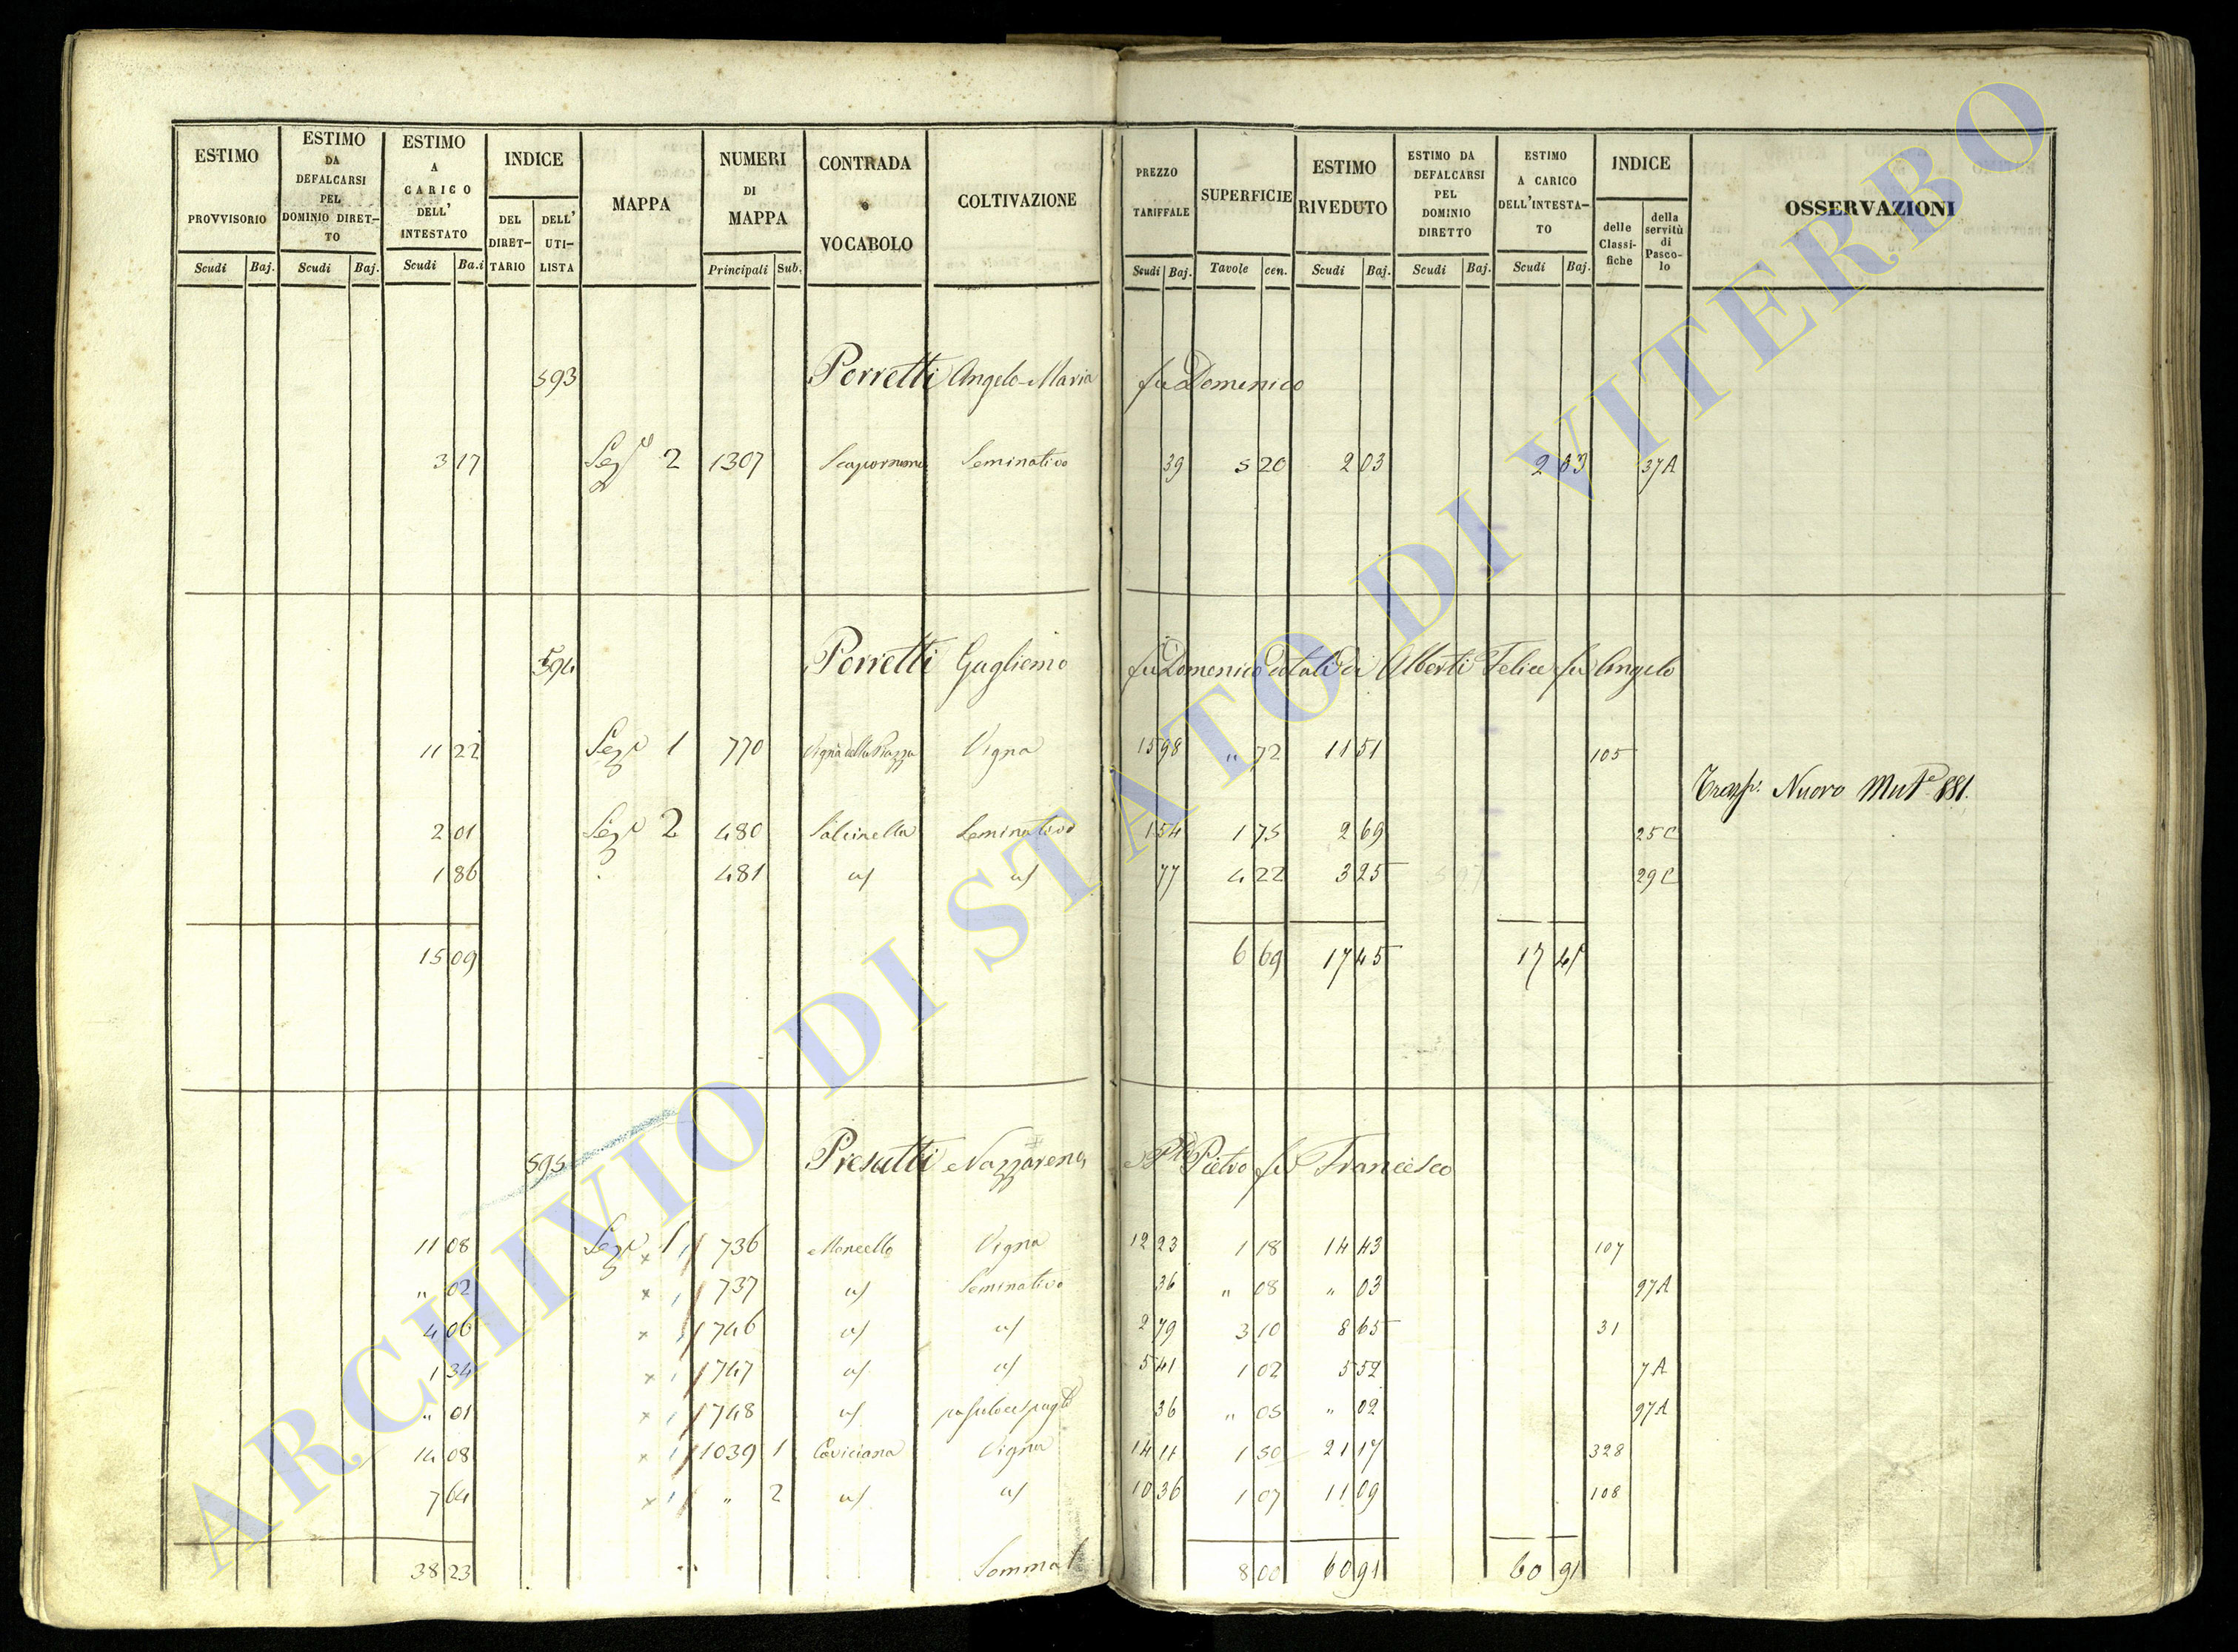 ESTIMO PROVVISORIO Scudi Baj.
ESTIMO DA DEFALCARSI PEL DOMINIO DIRET-TO Scudi Baj.
ESTIMO A CARICO DELL' INTESTATO Scudi Ba.i
INDICE DEL DIRET-TARIO DELL' UTI-LISTA
MAPPA
NUMERI DI MAPPA Principali Sub.
CONTRADA e VOCABOLO
COLTIVAZIONE
PREZZO TARIFFALE Scudi Baj.
SUPERFICIE Tavole cen.
ESTIMO RIVEDUTO Scudi Baj.
ESTIMO DA DEFALCARSI PEL DOMINIO DIRETTO Scudi Baj.
ESTIMO A CARICO DELL'INTESTA-TO Scudi Baj.
INDICE delle Classi-fiche della servitù di Pasco-lo
OSSERVAZIONI
593 Porretti Angelo Maria fu Domenico
3 17 Sez.e 2 1307 Seminativo 39 5 20 2 03 2 03 37A
594 Porretti Gugliemo fu Domenico dotali di Alberti Felice fu Angelo
11 22 Sez.e 1 770 Vigna della Piazza Vigna 15 98 " 72 11 51 105
Nuovo Mut.e 881.
2 01 Sez.e 2 480 Salcinella Seminativo 1 54 1 75 2 69 25C
1 86 481 id id 77 4 22 3 25 29C
15 09 6 69 17 45 17 45
595 Presutti Nazzareno Pietro fu Francesco
11 08 Sez.e 1 736 Moncello Vigna 12 23 1 18 14 43 107
" 02 737 id Seminativo 36 " 08 " 03 97A
4 06 746 id id 2 79 3 10 8 65 31
1 34 747 id id 5 41 1 02 5 52 7A
" 01 748 id 36 " 05 " 02 97A
14 08 1039 1 Caviciana Vigna 14 11 1 50 21 17 328
7 64 " 2 id id 10 36 1 07 11 09 108
38 23 Somma 8 00 60 91 60 91
ARCHIVIO DI STATO DI VITERBO